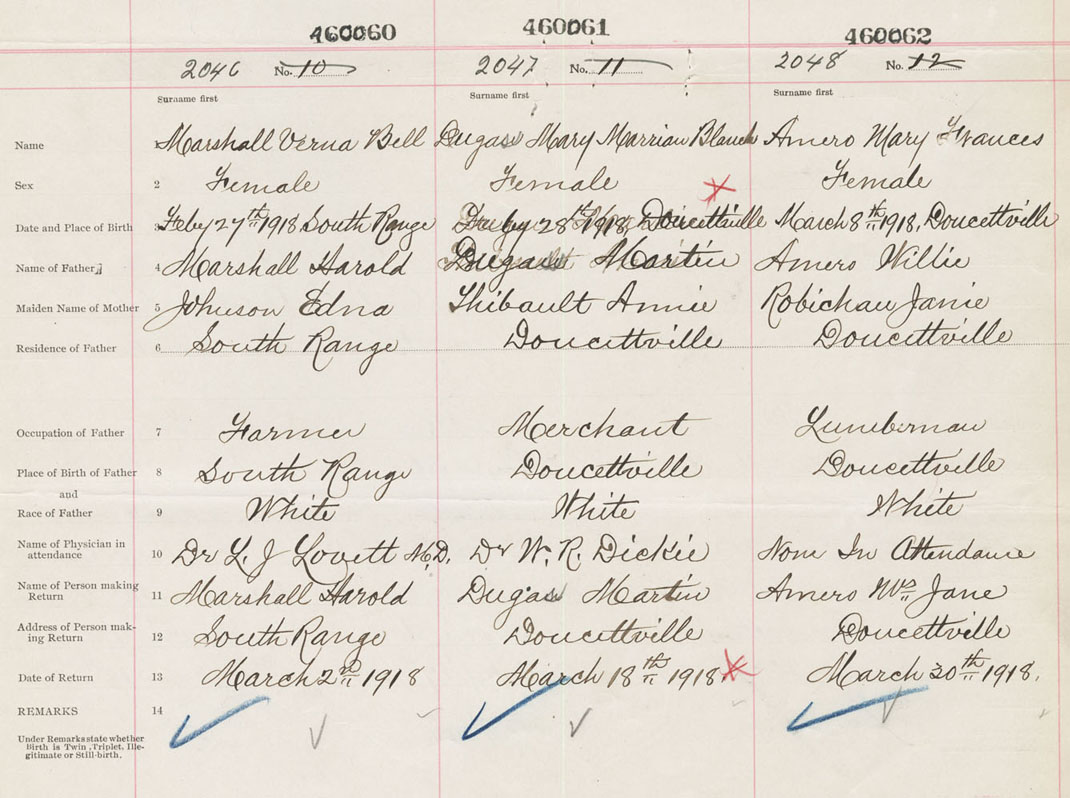 460060 460061 460062
2046 No. 10 2047 No. 11 2048 No. 12
Surname first Surname first Surname first
Name 1 Marshall Verna Bell Dugas Mary Marrian Blanch Amero Mary Frances
Sex 2 Female Female Female
Date and Place of Birth 3 Feby 27th 1918 South Range Feby 28th 1918 Doucettville March 8th 1918, Doucettville
Name of Father 4 Marshall Harold Dugas Martin Amero Willie
Maiden Name of Mother 5 Johnson Edna Thibault Annie Robichau Janie
Residence of Father 6 South Range Doucettville Doucettville
Occupation of Father 7 Farmer Merchant Lumberman
Place of Birth of Father 8 South Range Doucettville Doucettville
and
Race of Father 9 White White White
Name of Physician in
attendance 10 Dr L. J Lovett M.D. Dr W. R. Dickie Non In Attendance
Name of Person making
Return 11 Marshall Harold Dugas Martin Amero Mrs Jane
Address of Person mak-
ing Return 12 South Range Doucettville Doucettville
Date of Return 13 March 2nd 1918 March 18th 1918. March 20th 1918.
REMARKS 14
Under Remarks state whether
Birth is Twin, Triplet, Ille-
gitimate or Still-birth.